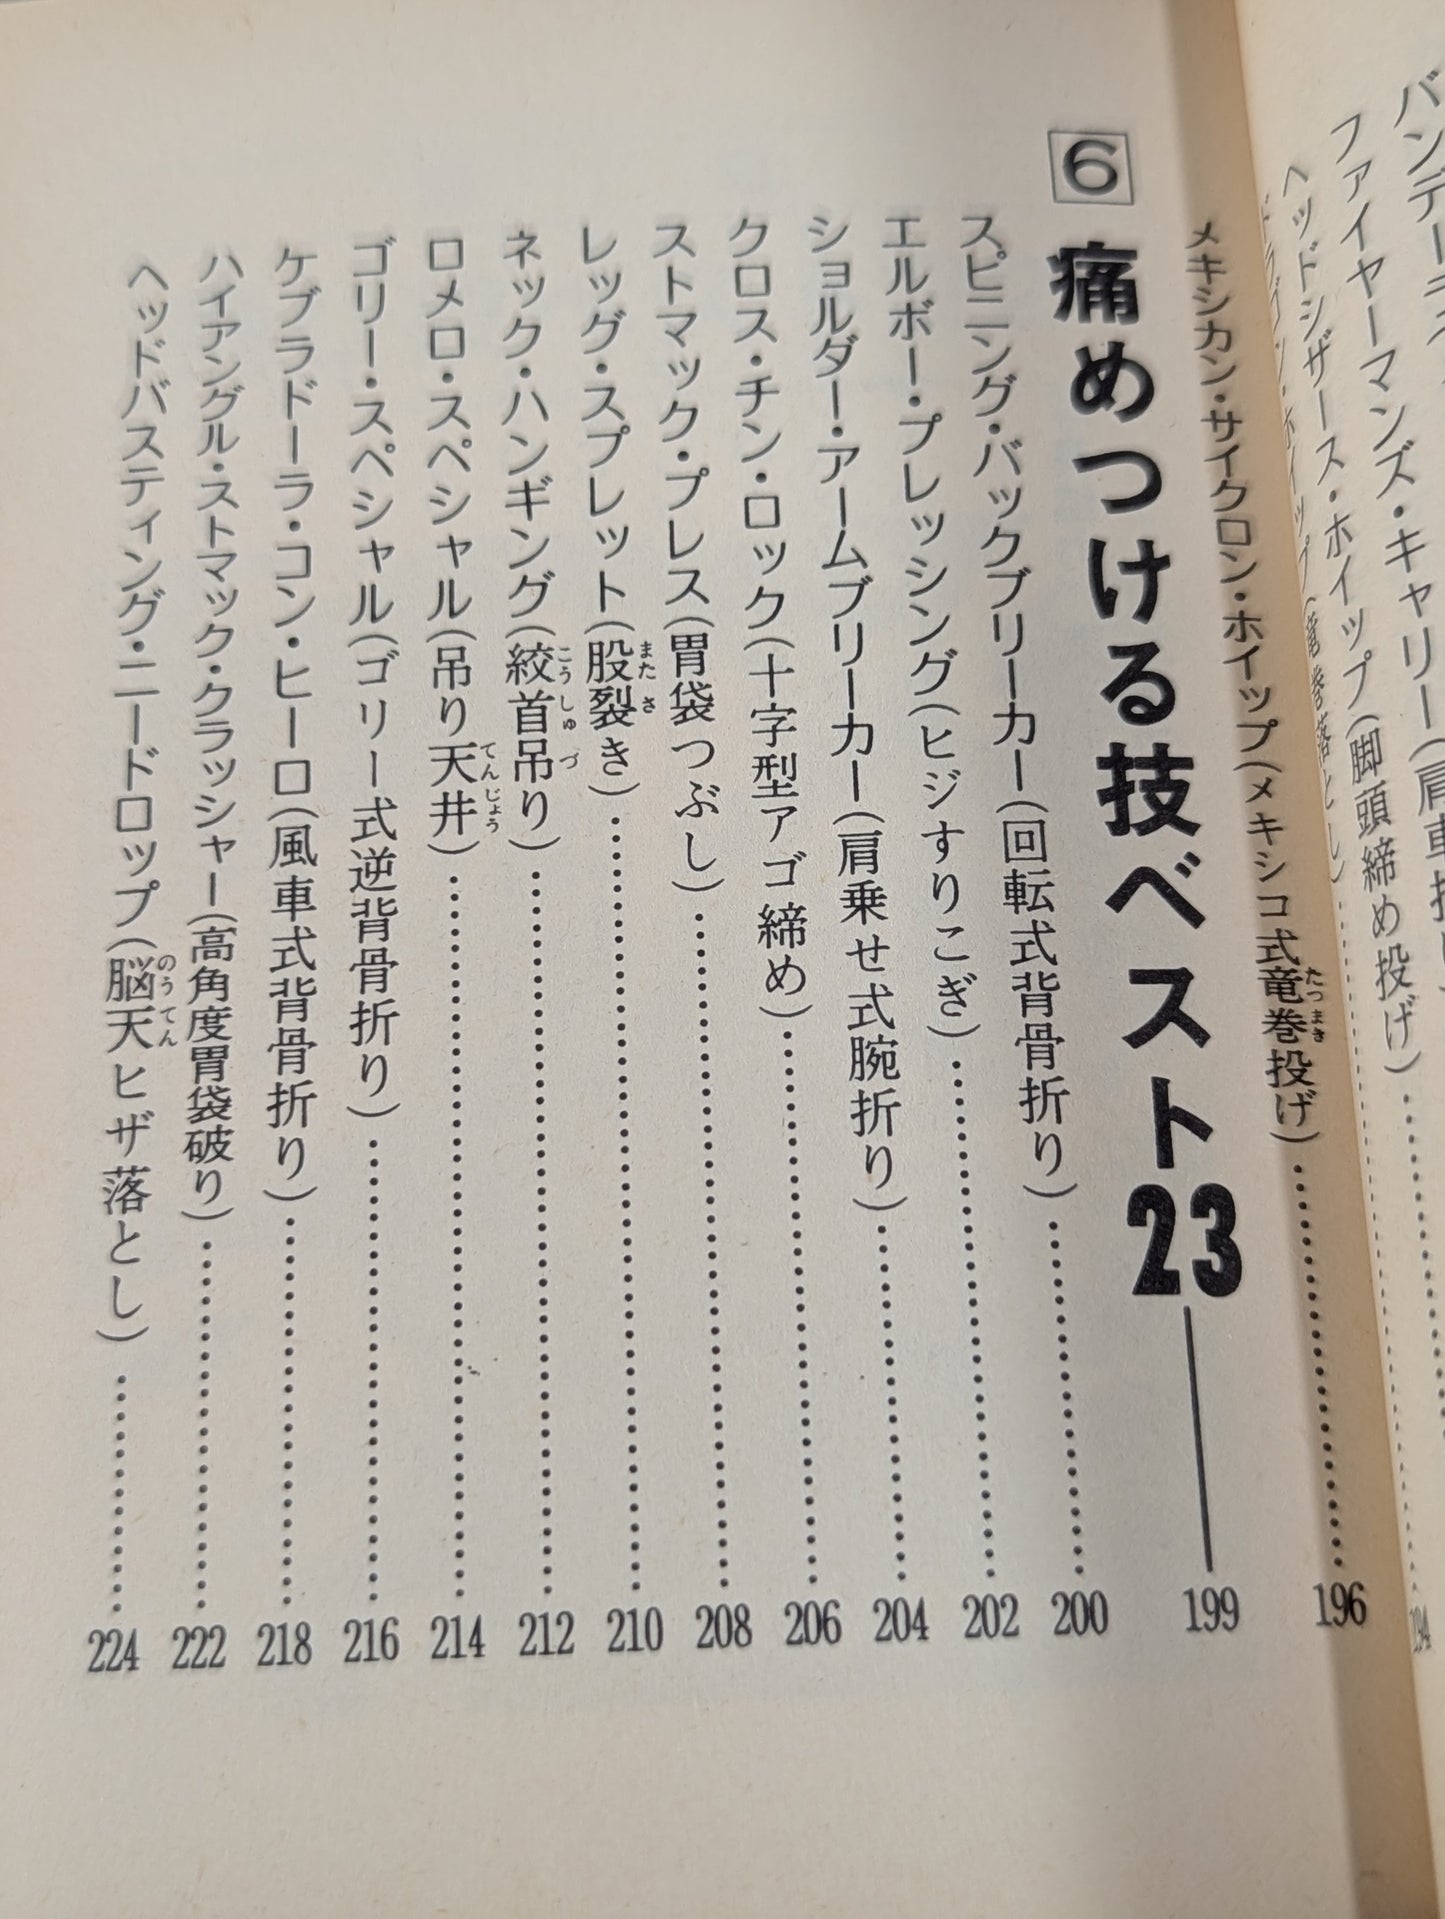 ファイヤーマンズ・キャリー(肩車投げ)
ヘッドシザース・ホイップ(脚頭締め投げ)
194
メキシカン・サイクロン・ホイップ(メキシコ式竜巻投げ)……196
たつまき
6 痛めつける技ベスト23——199
スピニング・バックブリーカー(回転式背骨折り)……200
エルボー・プレッシング(ヒジすりこぎ)……202
ショルダー・アームブリーカー(肩乗せ式腕折り)……204
クロス・チン・ロック(十字型アゴ締め)……206
ストマック・プレス(胃袋つぶし)……208
レッグ・スプレット(股裂き)……210
またさ
ネック・ハンギング(絞首吊り)……212
こうしゅづ
ロメロ・スペシャル(吊り天井)……214
てんじょう
ゴリー・スペシャル(ゴリー式逆背骨折り)……216
ケブラドーラ・コン・ヒーロ(風車式背骨折り)……218
ハイアングル・ストマック・クラッシャー(高角度胃袋破り)……222
ヘッドバスティング・ニードロップ(脳天ヒザ落とし)……224
のうてん